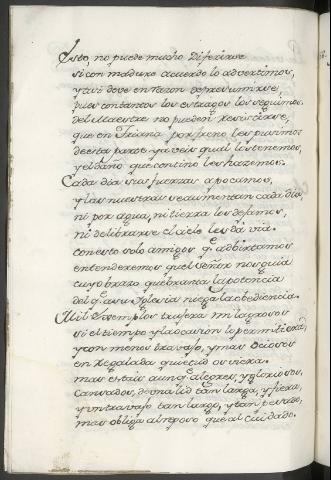 Esto, no puede mucho diferirse
si con maduro acuerdo lo advertimos,
y assi deve en razon de presumirse,
pues con tantos los estragos los seguimos.
del Maestre no pueden resistirse,
que en Triana por freno les pusimos
de esta parte ya veis qual los tenemos,
y el daño que contino les hazemos.
Cada dia sus fuerzas apocamos,
y las nuestras se aumentan cada dia,
ni por agua, ni tierra los dejamos,
ni de librarse el cielo les da via.
con esto solo amigos q advirtamos
entenderemos quel Señor nos guia
cuyo brazo quebranta la potencia
del q a su Iglesia niega la obediencia.
Mil exemplos truxera milagrosos
si el tiempo y la ocasion lo permitiera
y con menos travajo, y mas
en regalada quietud os viera.
mas estais aunq alegres, y gloriosos,
cansados, de una lid tan larga, y fiera,
y un travajo tan largo, y tan pesado,
mas obliga al reposo que al cuidado.